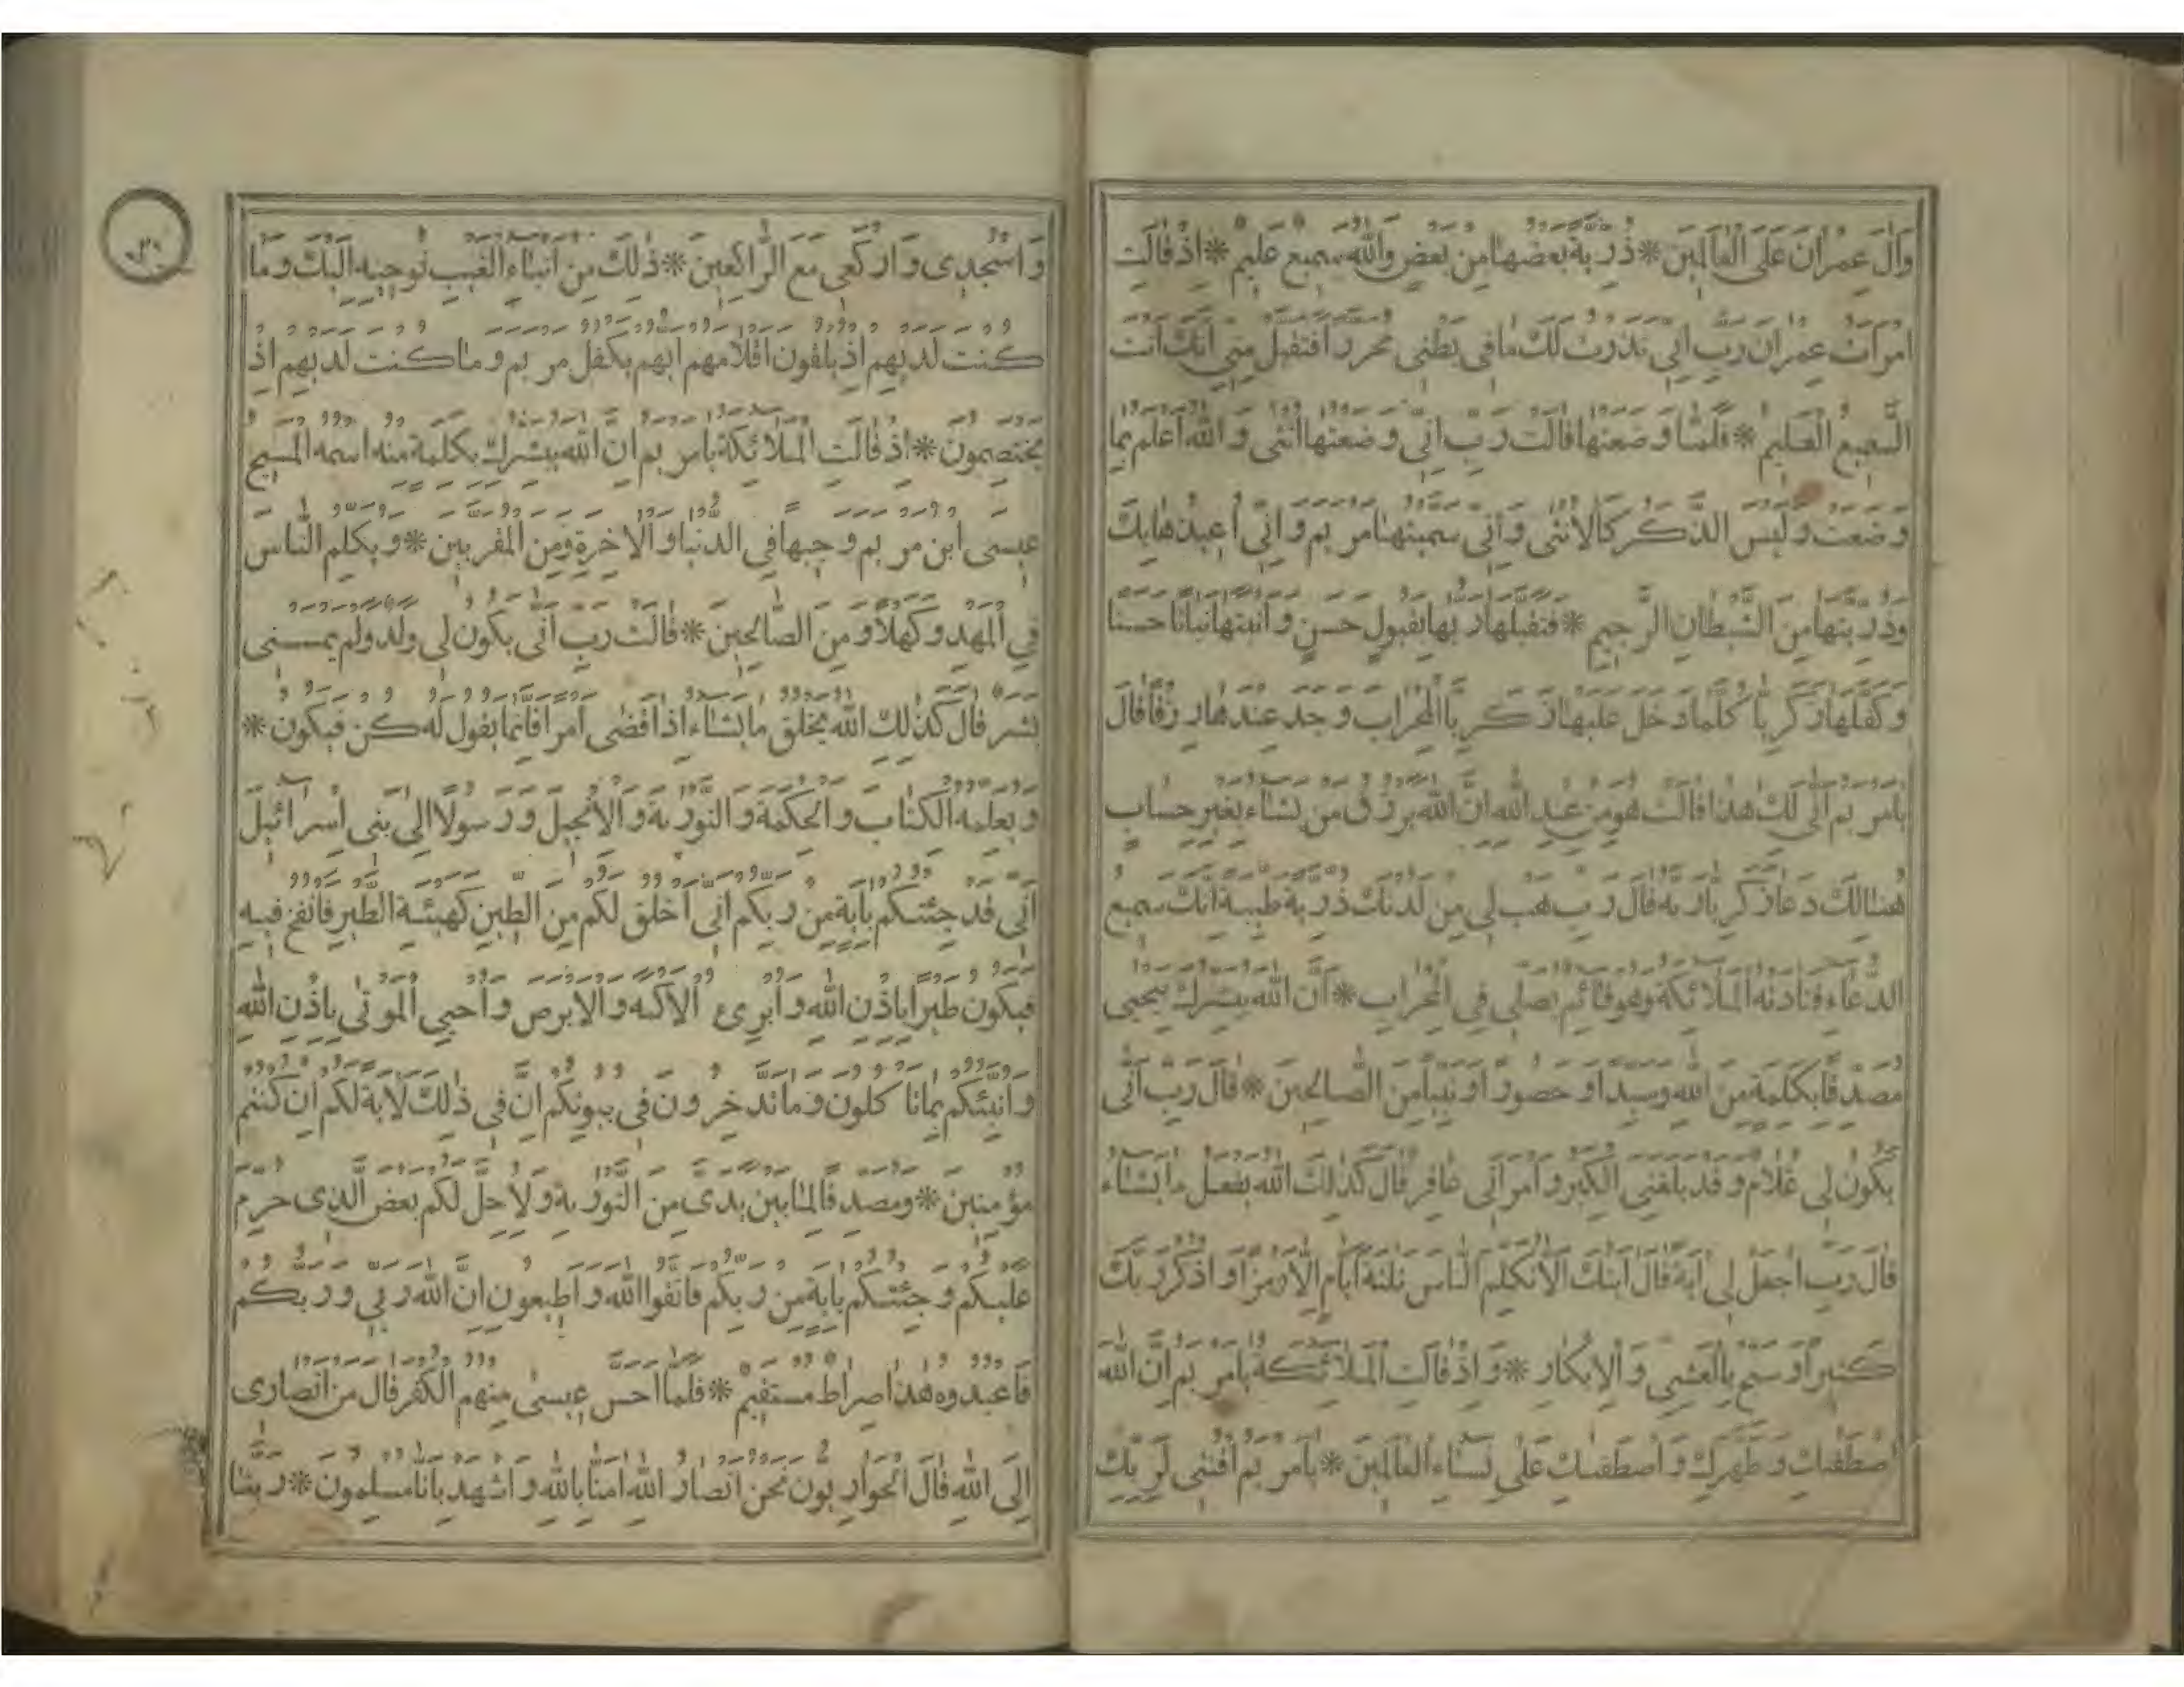 وال عمران على العالمين * ذرية بعضها من بعض والله سميع عليم * اذ قالت
امرات عمران رب اني نذرت لك ما في بطني محررا فتقبل مني انك انت
السميع العليم * فلما وضعتها قالت رب اني وضعتها انثى والله اعلم بما
وضعت وليس الذكر كالانثى واني سميتها مريم واني اعيذها بك
وذريتها من الشيطان الرجيم * فتقبلها ربها بقبول حسن وانبتها نباتا حسنا
وكفلها زكريا كلما دخل عليها زكريا المحراب وجد عندها رزقا قال
يا مريم انى لك هذا قالت هو من عند الله ان الله يرزق من يشاء بغير حساب
هنالك دعا زكريا ربه قال رب هب لي من لدنك ذرية طيبة انك سميع
الدعاء فنادته الملائكة وهو قائم يصلي في المحراب * ان الله يبشرك بيحيى
مصدقا بكلمة من الله وسيدا وحصورا ونبيا من الصالحين * قال رب انى
يكون لي غلام وقد بلغني الكبر وامراتي عاقر قال كذلك الله يفعل ما يشاء
قال رب اجعل لي اية قال ايتك الا تكلم الناس ثلثة ايام الا رمزا واذكر ربك
كثيرا وسبح بالعشي والابكار * واذ قالت الملائكة يا مريم ان الله
اصطفيك وطهرك واصطفيك على نساء العالمين * يا مريم اقنتي لربك
واسجدي واركعي مع الراكعين * ذلك من انباء الغيب نوحيه اليك وما
كنت لديهم اذ يلقون اقلامهم ايهم يكفل مريم وما كنت لديهم اذ
يختصمون * اذ قالت الملائكة يا مريم ان الله يبشرك بكلمة منه اسمه المسيح
عيسى ابن مريم وجيها في الدنيا والاخرة ومن المقربين * ويكلم الناس
في المهد وكهلا ومن الصالحين * قالت رب انى يكون لي ولد ولم يمسسني
بشر قال كذلك الله يخلق ما يشاء اذا قضى امرا فانما يقول له كن فيكون *
ويعلمه الكتاب والحكمة والتورية والانجيل ورسولا الى بني اسرائيل
اني قد جئتكم باية من ربكم اني اخلق لكم من الطين كهيئة الطير فانفخ فيه
فيكون طيرا باذن الله وابرئ الاكمه والابرص واحيي الموتى باذن الله
وانبئكم بما تاكلون وما تدخرون في بيوتكم ان في ذلك لاية لكم ان كنتم
مؤمنين * ومصدقا لما بين يدي من التورية ولاحل لكم بعض الذي حرم
عليكم وجئتكم باية من ربكم فاتقوا الله واطيعون ان الله ربي وربكم
فاعبدوه هذا صراط مستقيم * فلما احس عيسى منهم الكفر قال من انصاري
الى الله قال الحواريون نحن انصار الله امنا بالله واشهد بانا مسلمون * ربنا